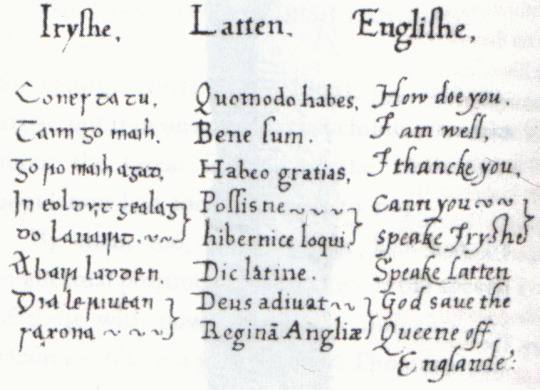 Iryshe, Latten. Englishe,
Coner ta tu, Quomodo habes, How doe you,
Taim go maih, Bene sum. I am well,
Go ro maih agad, Habeo gratias, I thancke you,
In gealag Possisne Cann you
do lauairt. hibernice loqui, speake Iryshe
Abair ladden, Dic latine. Speake Latten
Dia le riuean Deus adiuat God save the
saxona Reginā Angliæ Queene off
Englande: